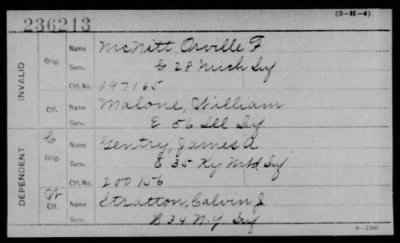 236213
(3-H-4)
INVALID
Orig. Name McNitt, Orville F
Serv. G 28 Mich Inf
Ctf. No. 197165
Ctf. Name Malone, William
Serv. E 56 Ill Inf
DEPENDENT
C Orig. Name Gentry, James A
Serv. E 35 Ky Mtd Inf
Ctf. No. 200156
W Ctf. Name Stratton, Calvin J
Serv. H 34 N.Y. Inf